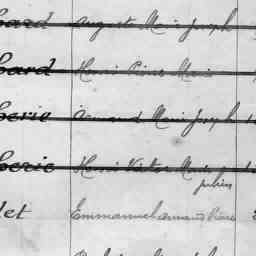 bard Auguste Marie Joseph
bard Henri Pierre Marie
berie Armand Marie Joseph
berie Henri Victor Marie
julien
let Emmanuel armand Pierre